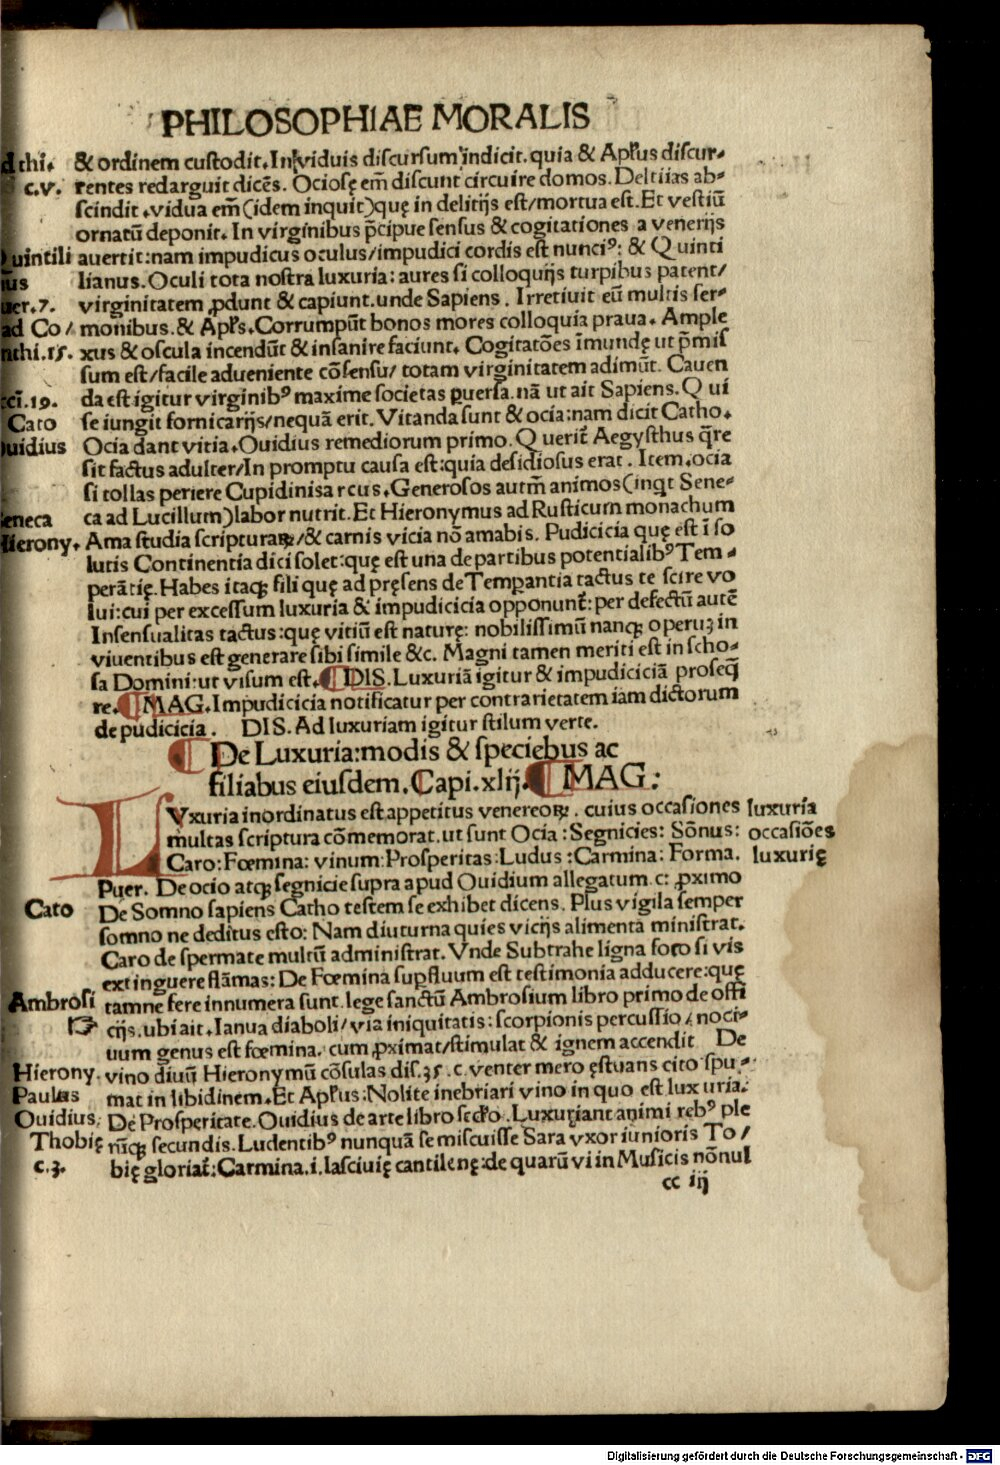 PHILOSOPHIAE MORALIS
& ordinem custodit. In viduis discursum indicit. quia & Apl'us discur-
rentes redarguit dicēs. Ociosę em̄ discunt circuire domos. Delitias ab-
scindit. vidua em̄ (idem inquit) quę in delitijs est/mortua est. Et vestiū
ornatū deponit. In virginibus p̄cipue sensus & cogitationes a venerijs
avertit: nam impudicus oculus/impudici cordis est nunciꝰ: & Quinti
lianus. Oculi tota nostra luxuria: aures si colloquijs turpibus patent/
virginitatem ꝓdunt & capiunt. unde Sapiens. Irretiuit eū multis ser-
monibus. & Apl's. Corrumpūt bonos mores colloquia praua. Ample
xus & oscula incendūt & insanire faciunt. Cogitatōes īmundę ut p̄mis
sum est/facile adueniente cōsensu/ totam virginitatem adimūt. Cauen
da est igitur virginibꝰ maxime societas ꝑuersa. nā ut ait Sapiens. Qui
se iungit fornicarijs/nequā erit. Vitanda sunt & ocia: nam dicit Catho.
Ocia dant vitia. Ouidius remediorum primo. Querit̄ Aegysthus q̄re
sit factus adulter/In promptu causa est: quia desidiosus erat. Item. ocia
si tollas periere Cupidinis arcus. Generosos autm̄ animos (inqt Sene-
ca ad Lucillum) labor nutrit. Et Hieronymus ad Rusticum monachum
Ama studia scripturaꝝ/& carnis vicia nō amabis. Pudicicia quę est ī so
lutis Continentia dici solet: quę est una de partibus potentialibꝰ Tem-
perātię. Habes itaqꝫ fili quę ad pręsens de Temꝑantia tactus te scire vo
lui: cui per excessum luxuria & impudicicia opponunt̄: per defectū autē
Insensualitas tactus: quę vitiū est naturę: nobilissimū nanqꝫ operuꝫ in
viuentibus est generare sibi simile &c. Magni tamen meriti est in scho-
la Domini: ut visum est. ¶DIS. Luxuriā igitur & impudiciciā proseq̄
re. ¶MAG. Impudicicia notificatur per contrarietatem iam dictorum
de pudicicia. DIS. Ad luxuriam igitur stilum verte.
¶De Luxuria: modis & speciebus ac
filiabus eiusdem. Capi. xlij. ¶MAG:
LVxuria inordinatus est appetitus venereoꝝ. cuius occasiones
multas scriptura cōmemorat. ut sunt Ocia: Segnicies: Sōnus:
Caro: Fœmina: vinum: Prosperitas: Ludus: Carmina: Forma.
Puer. De ocio atqꝫ segnicie supra apud Ouidium allegatum. c: ꝓximo
De Somno sapiens Catho testem se exhibet dicens. Plus vigila semper
somno ne deditus esto: Nam diuturna quies vicijs alimenta ministrat.
Caro de spermate multū administrat. Vnde Subtrahe ligna foco si vis
extinguere flāmas: De Fœmina suꝑfluum est testimonia adducere: quę
tamne fere innumera sunt. lege sanctū Ambrosium libro primo de offi
cijs. ubi ait. Ianua diaboli/via iniquitatis: scorpionis percussio/noci-
uum genus est fœmina. cum ꝓximat/stimulat & ignem accendit De
vino diuū Hieronymū cōsulas dis. 35. c. venter mero ęstuans cito spu-
mat in libidinem. Et Apl'us: Nolite inebriari vino in quo est luxuria.
De Prosperitate. Ouidius de arte libro sc'do. Luxuriant animi rebꝰ ple
rūqꝫ secundis. Ludentibꝰ nunquā se miscuisse Sara vxor iunioris To/
bię gloriat̄: Carmina. i. lasciuię cantilenę: de quarū vi in Musicis nōnul
cc iij
thi.
c.v.
Quintili
7.
ad Co/
nthi.15.
19.
Cato
Ouidius
Seneca
Hierony.
luxuria
occasiōes
luxurię
Cato
Ambrosi
☞
Hierony.
Paulus
Ouidius.
Thobię
c.3.
Digitalisierung gefördert durch die Deutsche Forschungsgemeinschaft - DFG